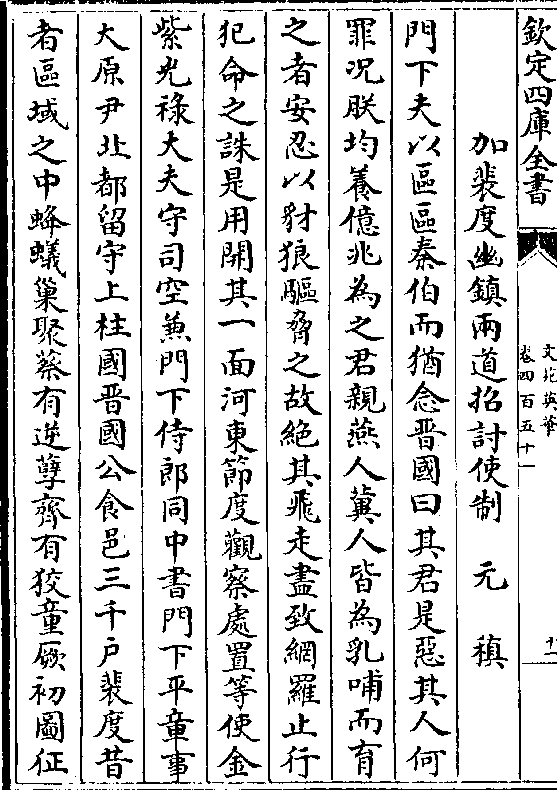 欽定四庫全書
文苑英華
卷四百五十一
十一
加裴度幽鎮兩道招討使制　元稹
門下夫以區區秦伯而猶念晉國曰其君是惡其人何
罪况朕均養億兆為之君親燕人冀人皆為乳哺而育
之者安忍以豺狼驅脅之故絶其飛走盡致網羅止行
犯命之誅是用開其一面河東節度觀察處置等使金
紫光祿大夫守司空兼門下侍郎同中書門下平章事
大原尹北都留守上柱國晉國公食邑三千户裴度昔
者區域之中蜂蟻巢聚蔡有逆孽齊有狡童厥初圖征